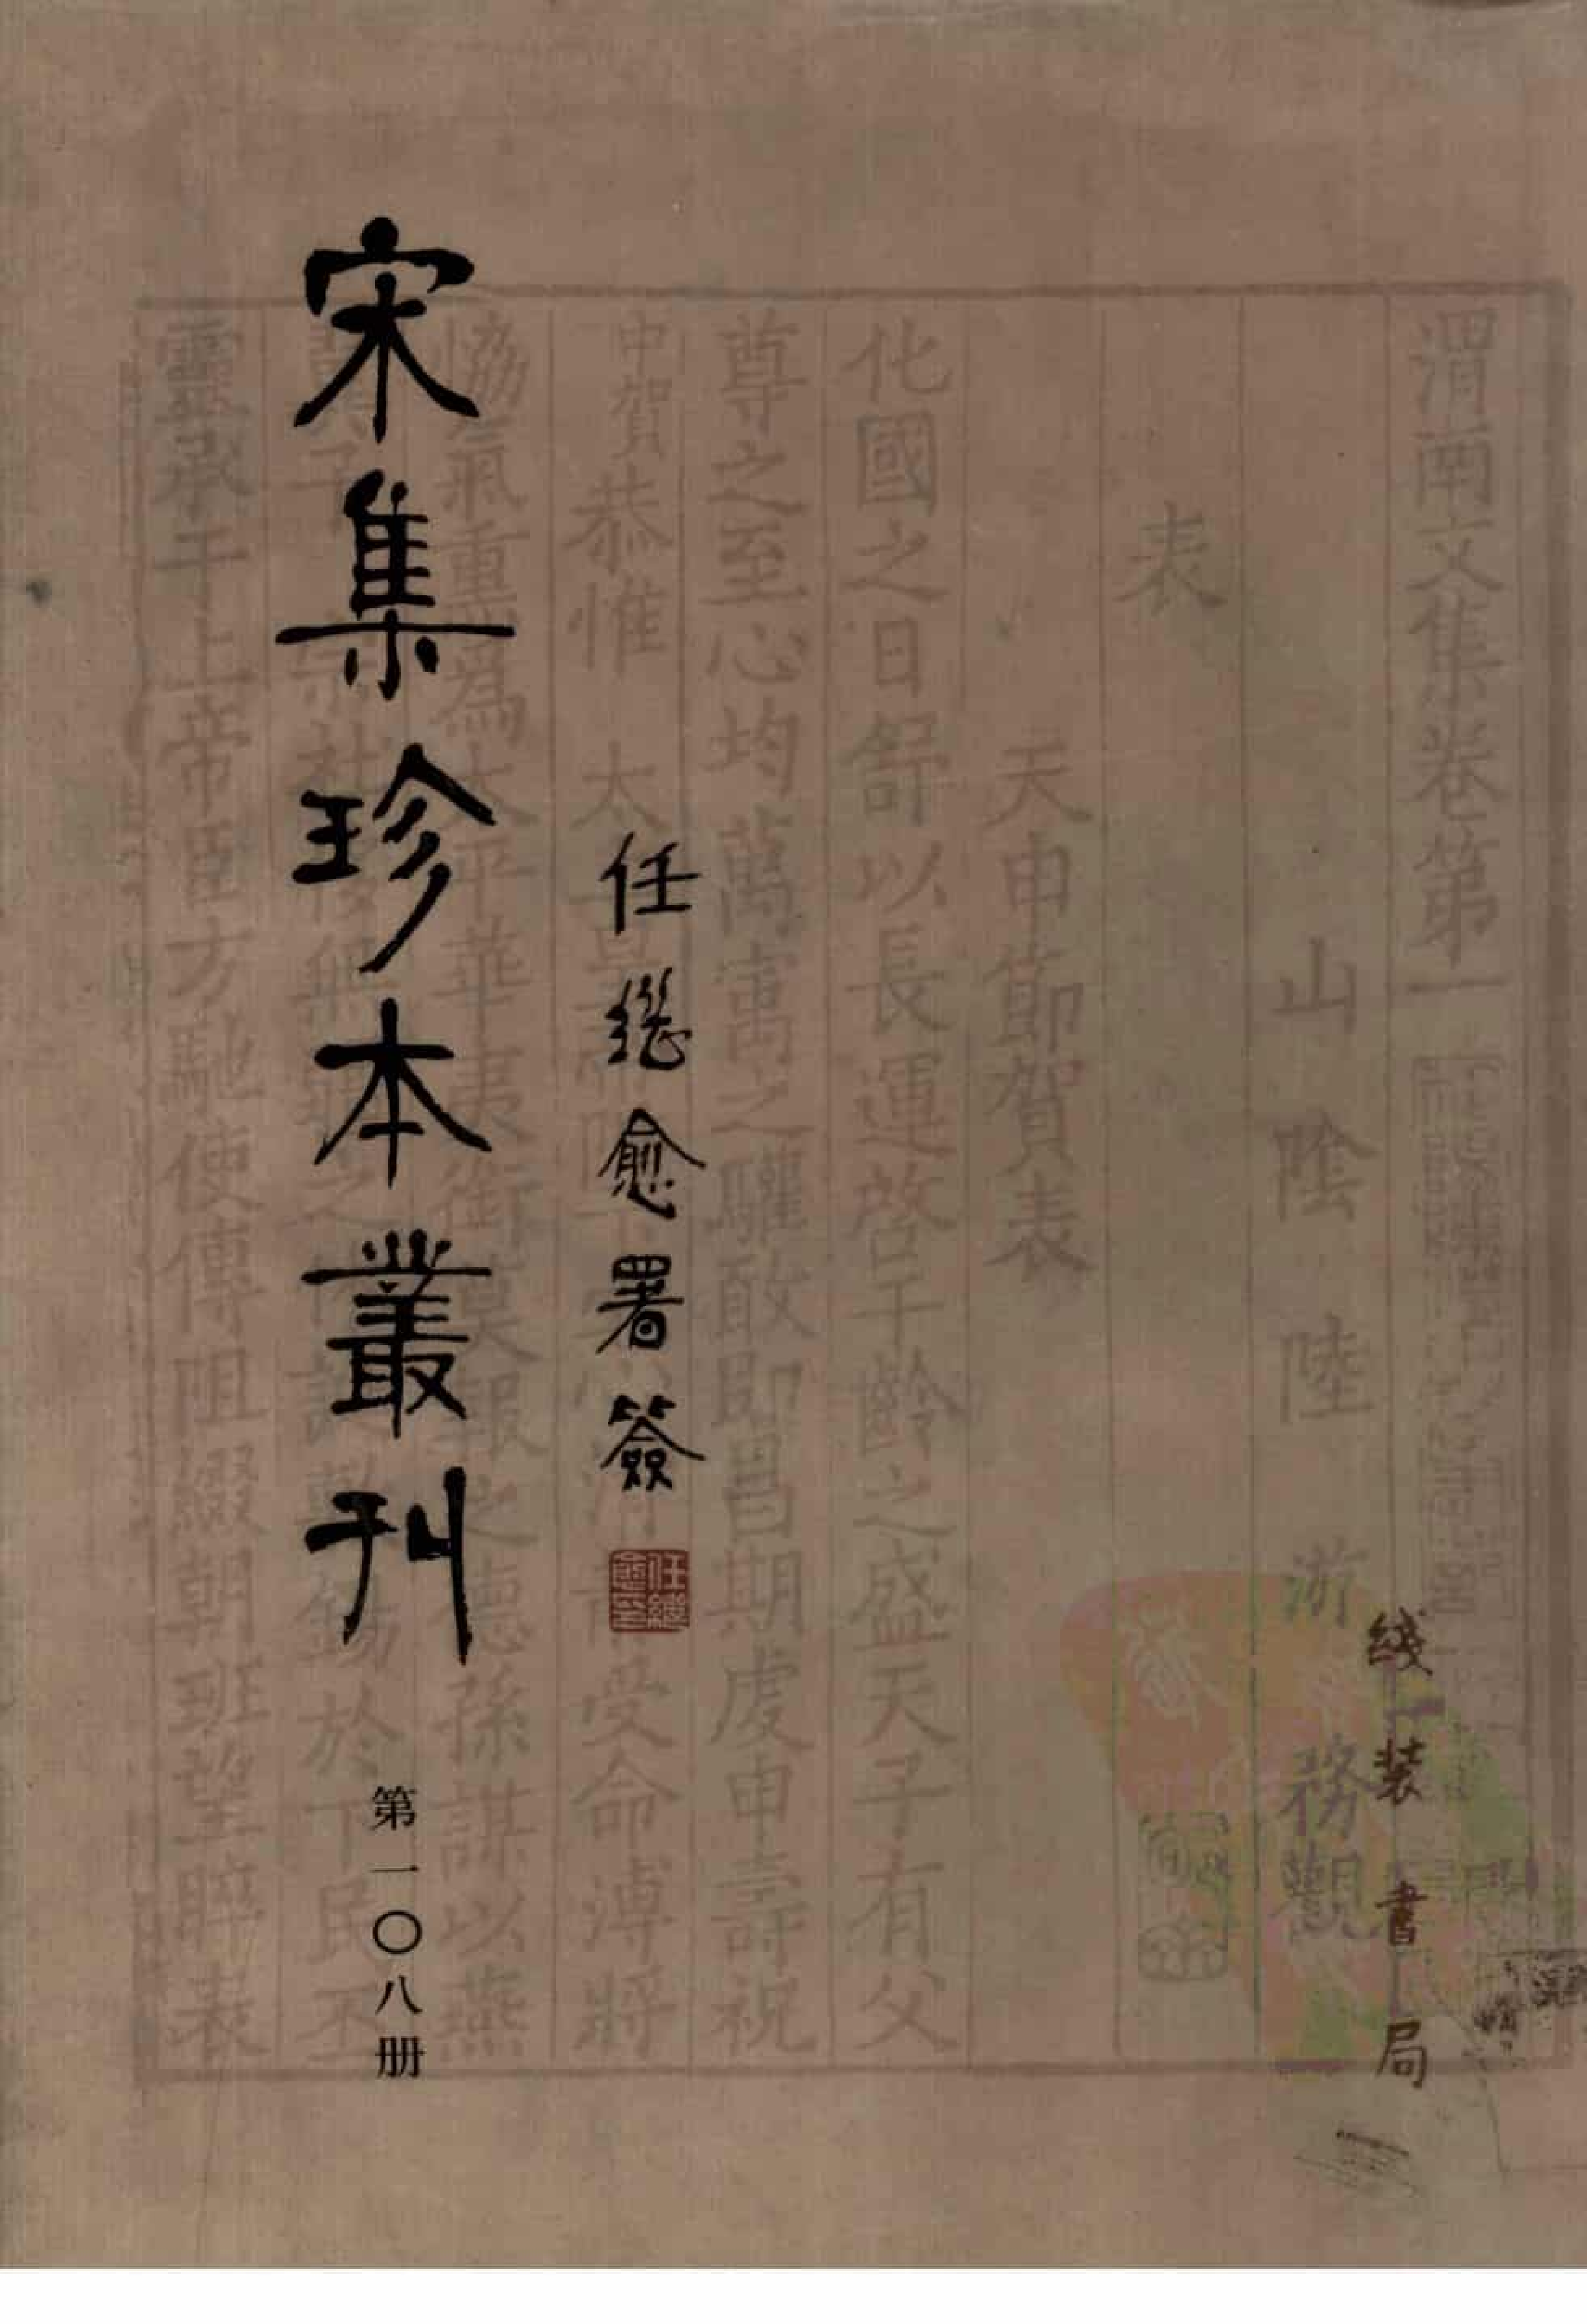 渭南文集卷第一
山陰陸游務觀
表
天申節賀表
化國之日舒以長運啓千齡之盛天子有父
尊之至心均萬㝢之驩敢即昌期虔申壽祝
中賀恭惟
受命溥將
協氣重爲太平華夷
之德孫謀以燕
於下民丕
靈承于上帝臣方馳使傳阻綴朝班望睟表
宋集珍本叢刊
任繼愈署簽
任繼愈印
第一〇八册
线装書局